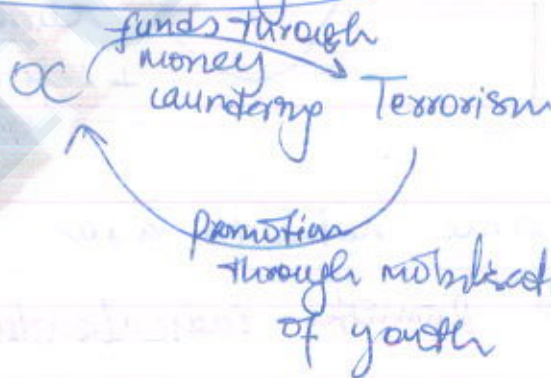 funds through
money
laundering
OC
Terrorism
promotion
through mobilisat
of youth